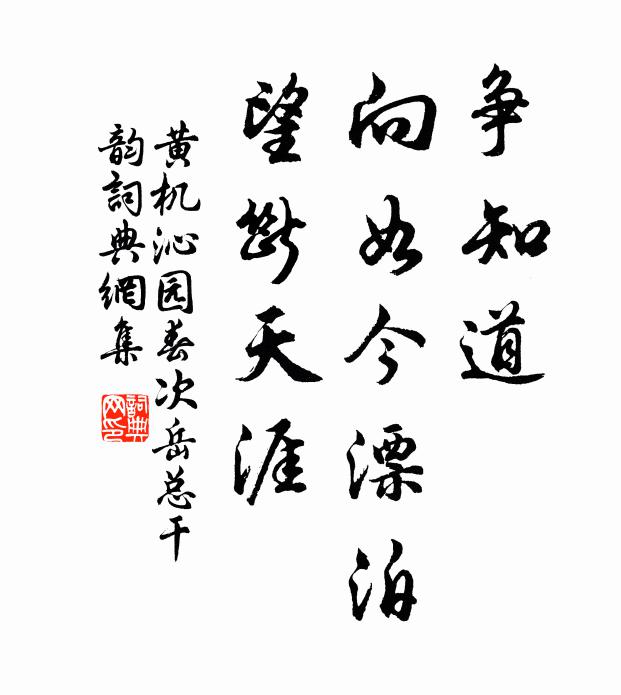 争知道
向如今漂泊
望断天涯
黄机沁园春次岳总干
韵詞典網集
詞典
网印